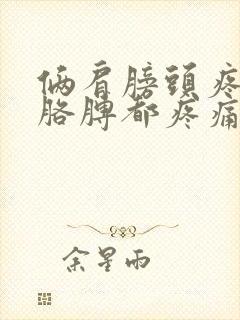 俩肩膀頭疼
胳脾都疼痛
余星雨